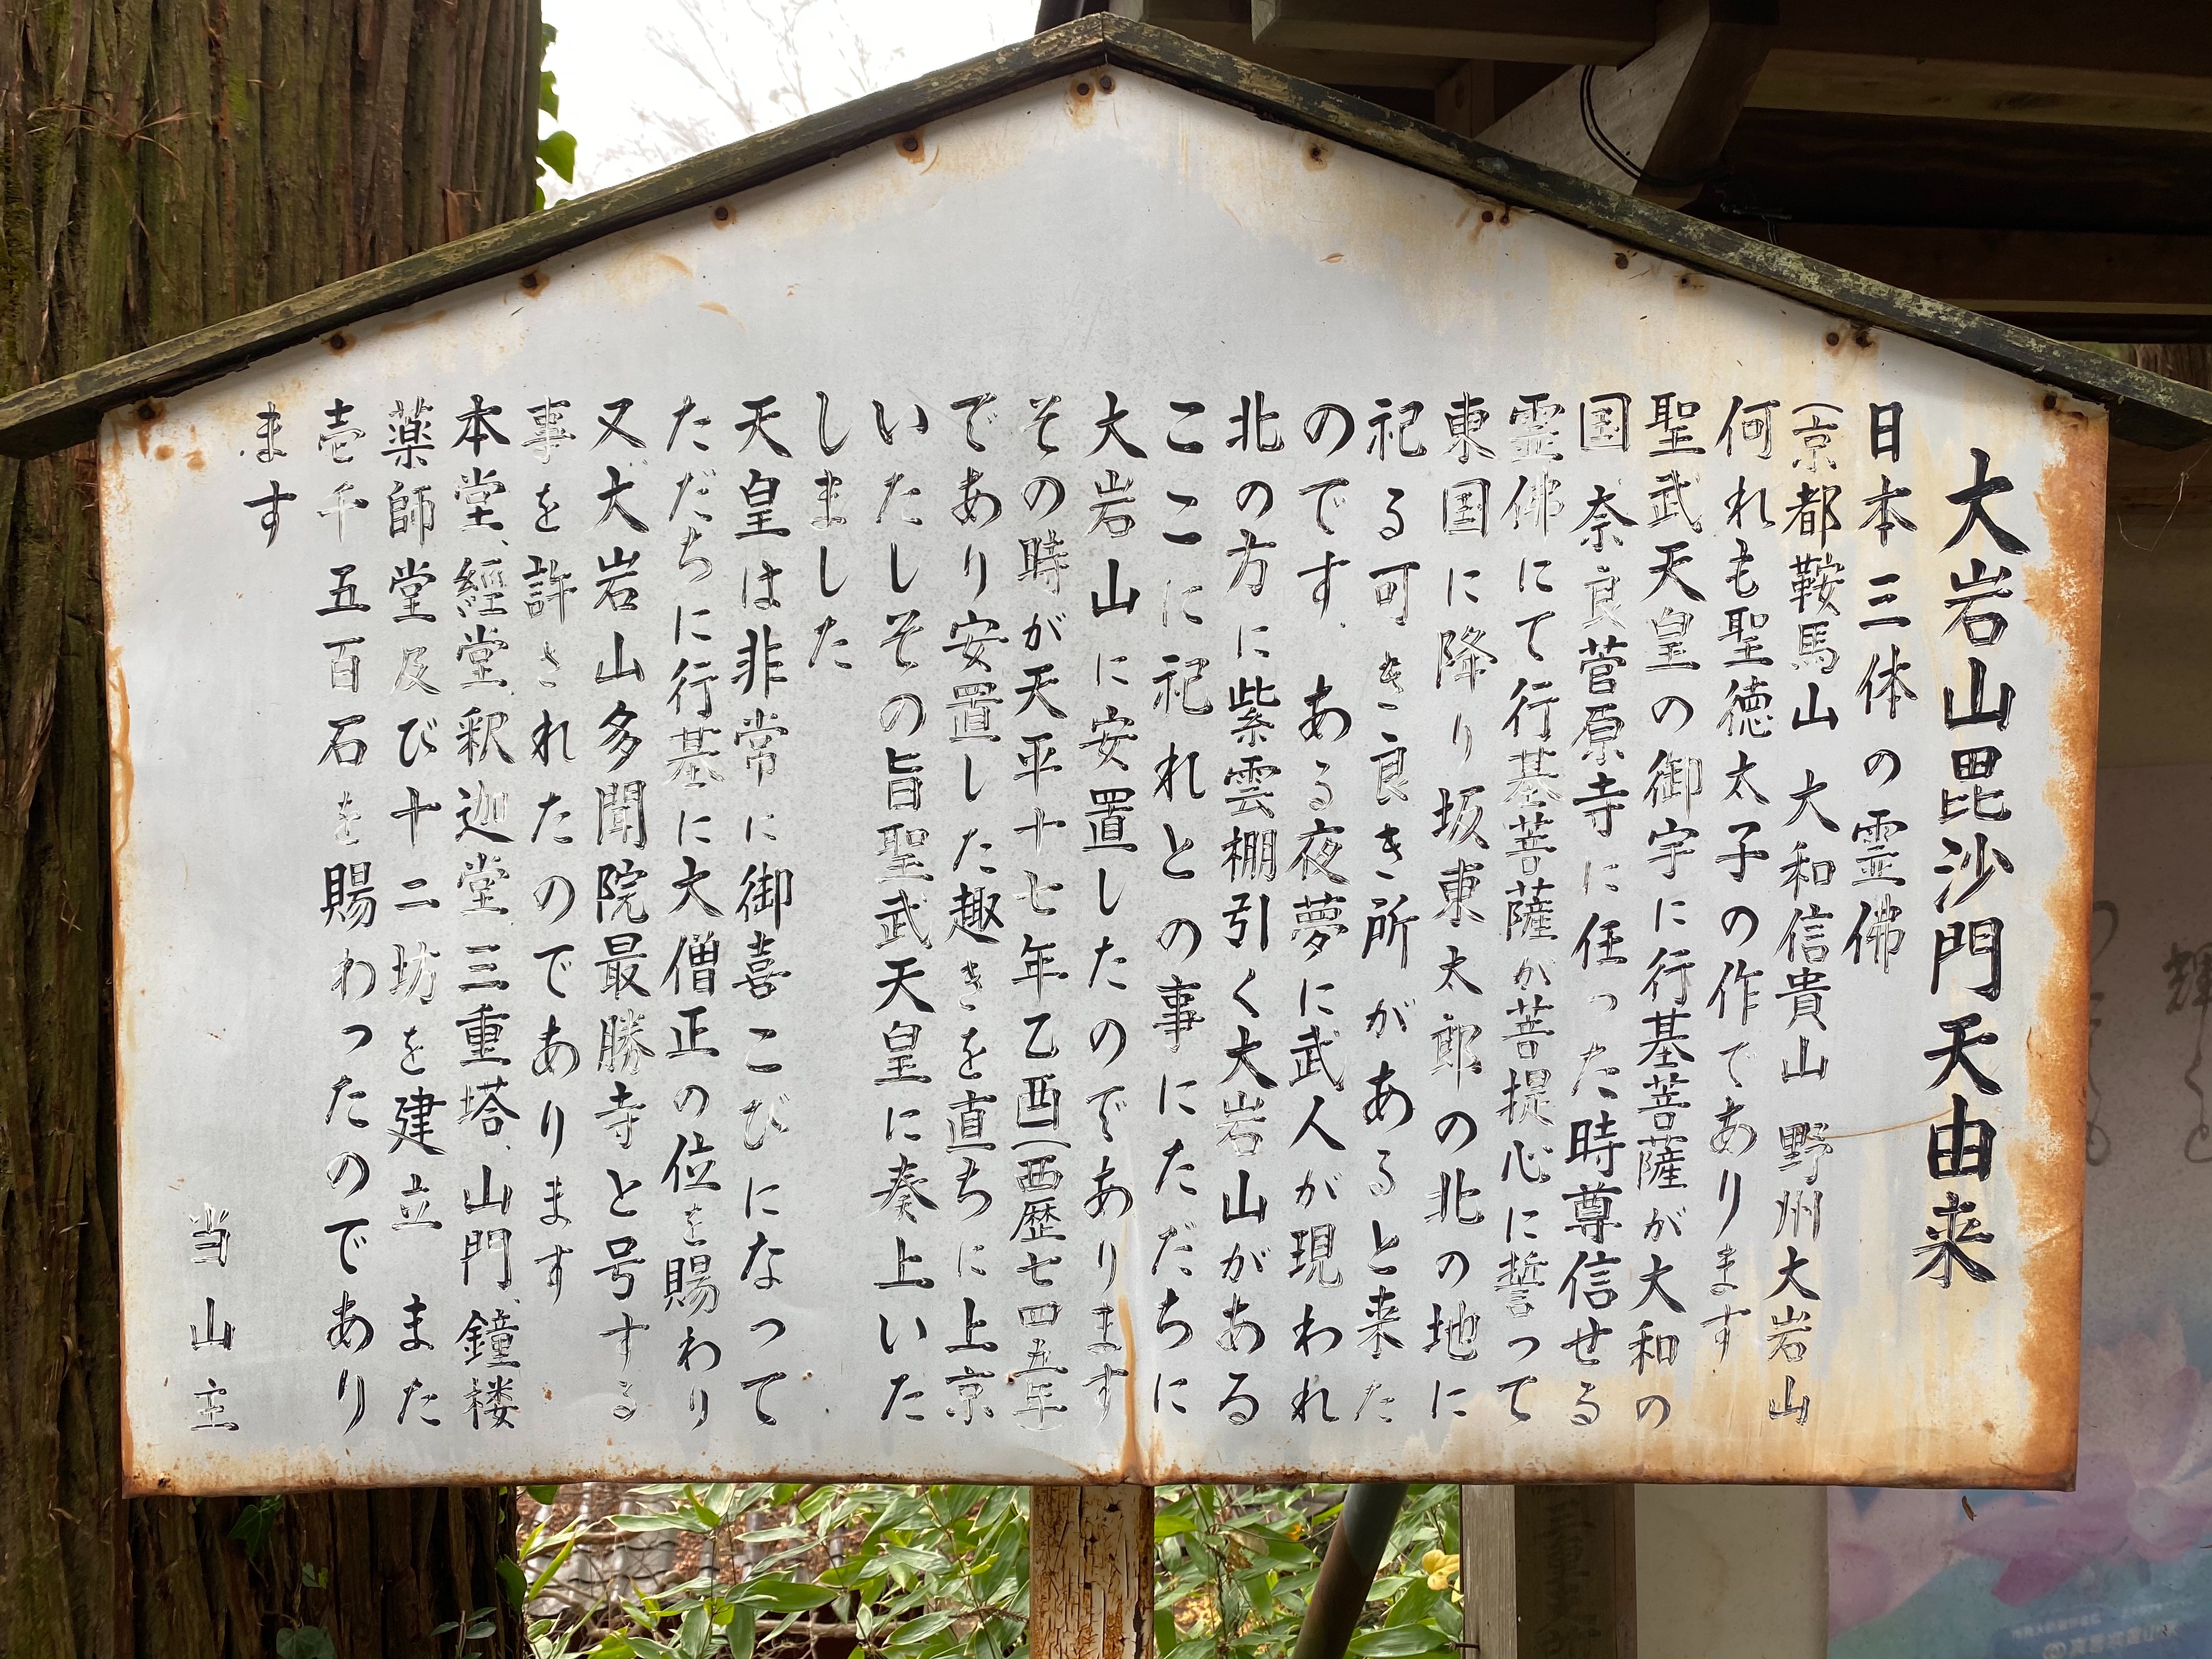 大岩山毘沙門天由来
日本三体の霊佛
(京都鞍馬山 大和信貴山 野州大岩山
何れも聖徳太子の作であります
聖武天皇の御宇に行基菩薩が大和の
国 奈良菅原寺に任った時尊信せる
霊佛にて行基菩薩が菩提心に誓って
東国に降り坂東太郎の北の地に
祀る可き良き所があると来た
のです、ある夜夢に武人が現われ
北の方に紫雲棚引く大岩山がある
ここに祀れとの事にただちに
大岩山に安置したのであります
その時が天平十七年乙酉(西歴七四五年)
であり安置した趣きを直ちに上京
いたしその旨聖武天皇に奏上いた
しました
天皇は非常に御喜こびになって
ただちに行基に大僧正の位を賜わり
又、大岩山多聞院最勝寺と号する
事を許されたのであります
本堂、經堂、釈迦堂、三重塔、山門、鐘楼
薬師堂及び十二坊を建立 また
壱千五百石を賜わったのであり
ます
当山主